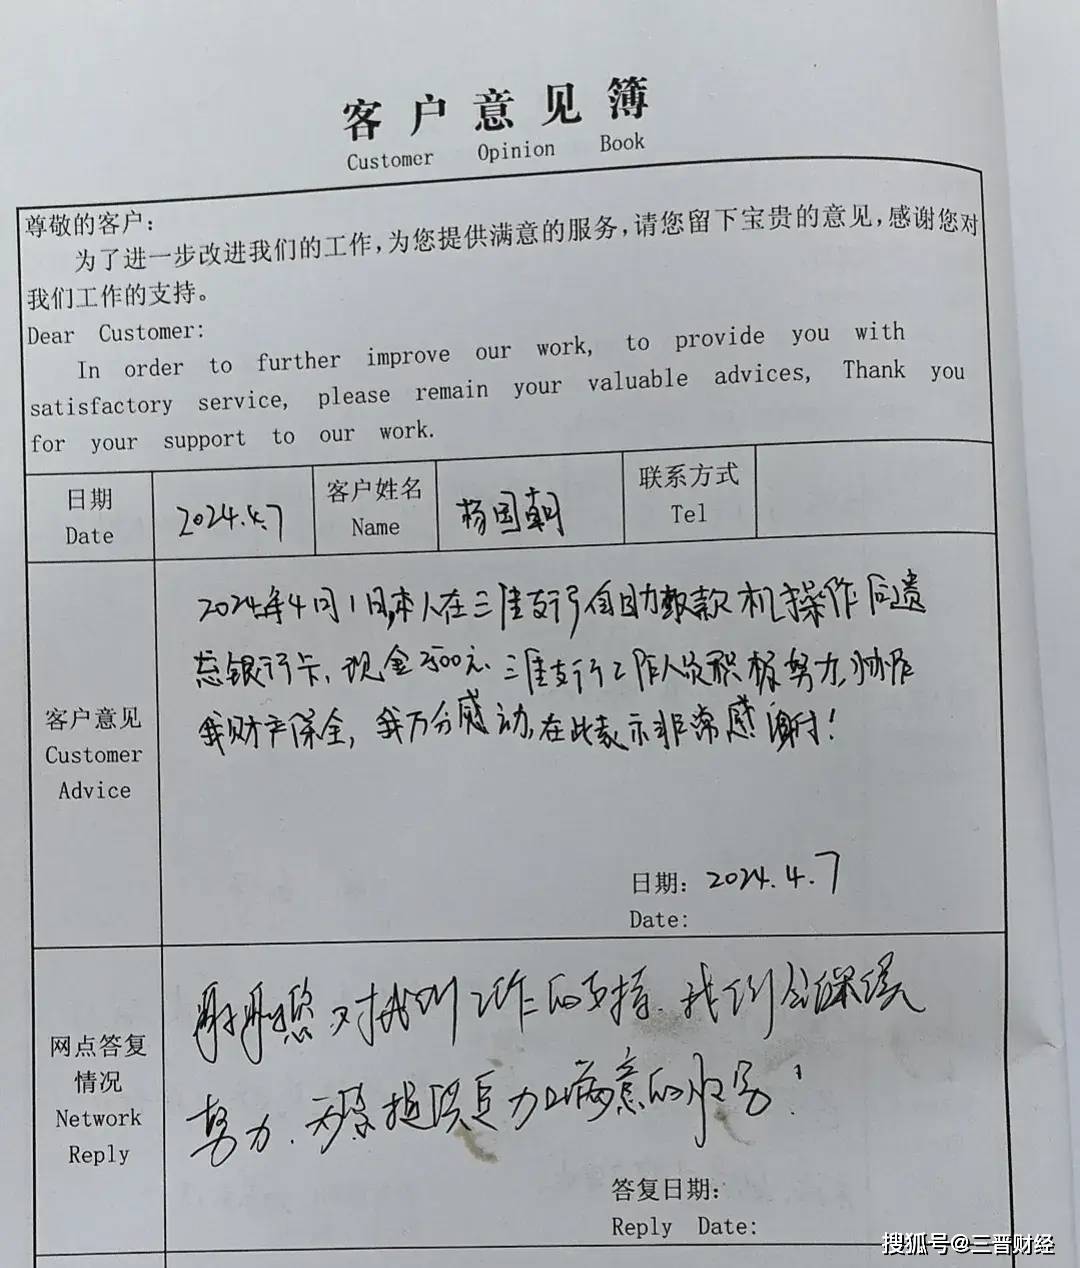 客户意见簿
Customer Opinion Book
尊敬的客户：
为了进一步改进我们的工作，为您提供满意的服务，请您留下宝贵的意见，感谢您对
我们工作的支持。
Dear Customer:
In order to further improve our work, to provide you with
satisfactory service, please remain your valuable advices, Thank you
for your support to our work.
日期
Date
2024.4.7
客户姓名
Name
杨国朝
联系方式
Tel
客户意见
Customer
Advice
2024年4月1日，本人在三佳支行自助取款机操作后遗
忘银行卡、现金2500元．三佳支行工作人员积极努力，协作
我财产保全，我万分感动，在此表示非常感谢！
日期：2024.4.7
Date:
网点答复
情况
Network
Reply
谢谢您对我们工作的支持．我们会继续
努力．为您提供更加满意的服务！
答复日期：
Reply Date:
搜狐号@三晋财经